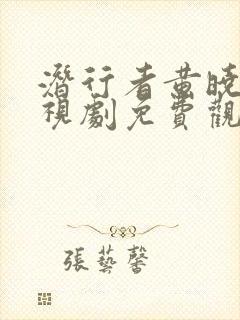 潛行者黃曉
視劇免費觀
張藝馨